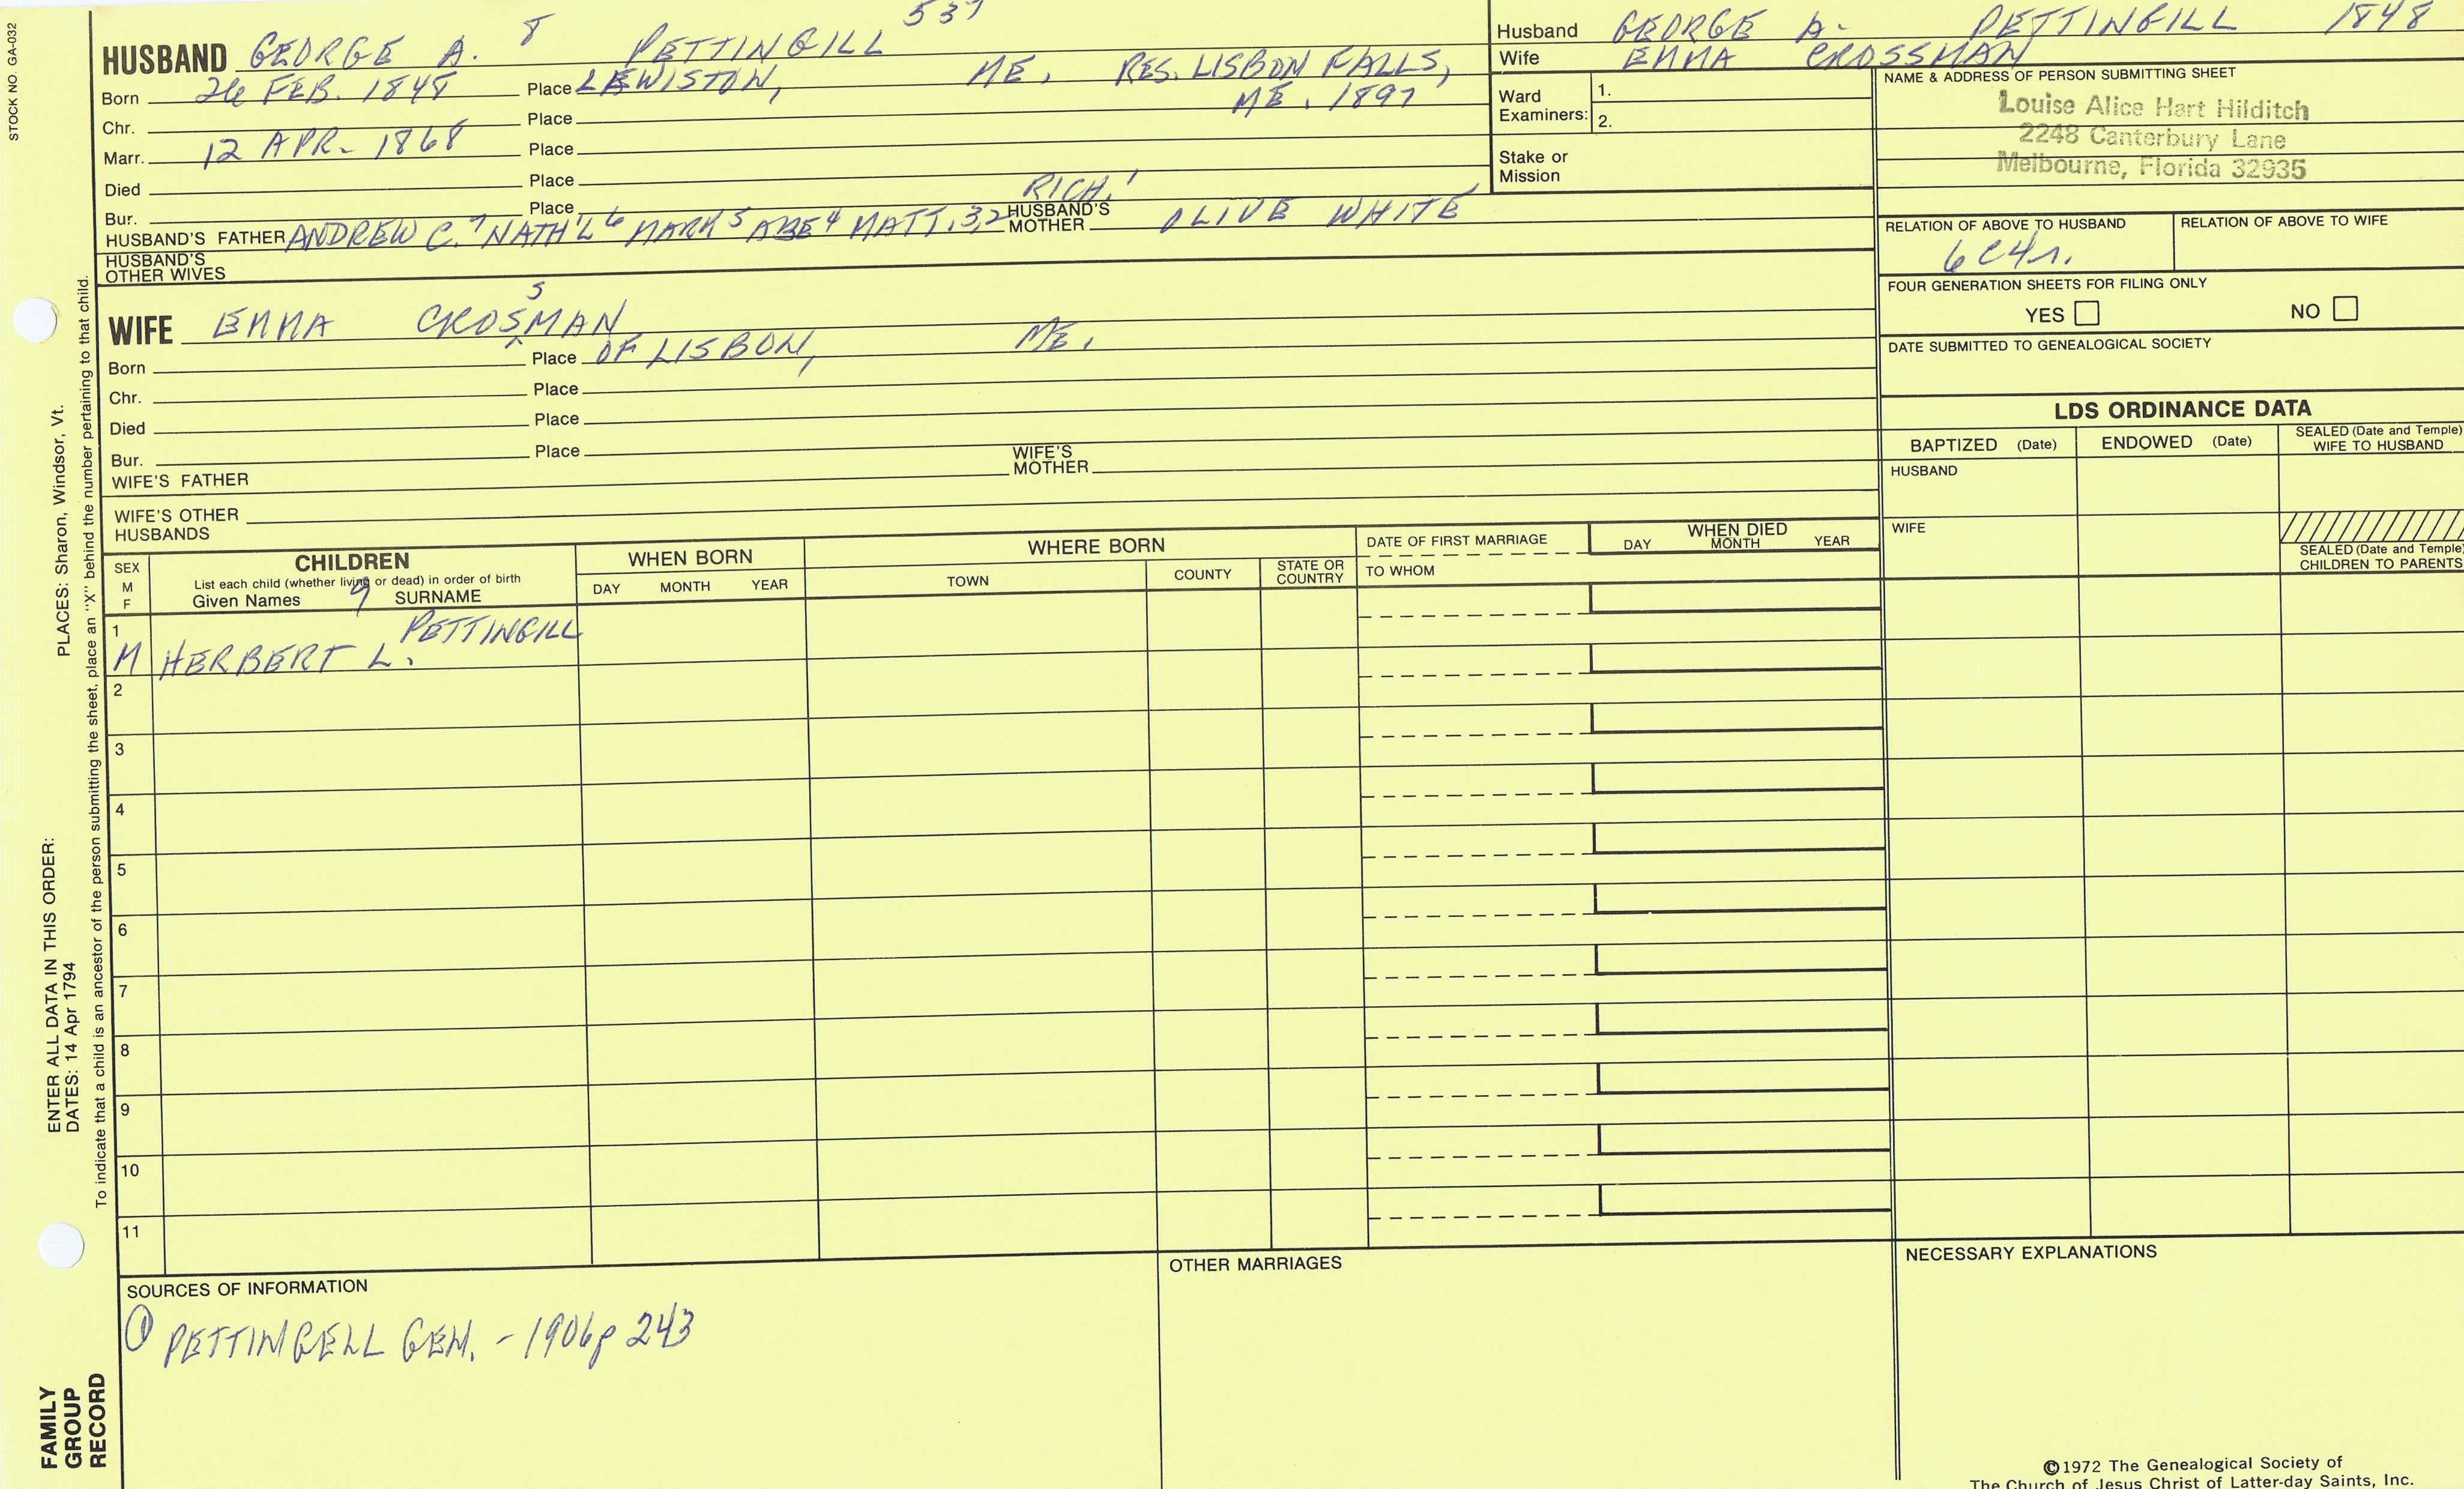 STOCK NO. GA-032
537
HUSBAND GEORGE A. 8 PETTINGILL
Born 26 FEB. 1848 Place LEWISTON, ME, RES. LISBON FALLS,
ME. 1897
Chr. Place
Marr. 12 APR. 1868 Place
Died Place
Bur. Place
RICH.1
HUSBAND'S FATHER ANDREW C.7 NATH'L6 MARK5 ABE4 MATT.3,2 HUSBAND'S MOTHER OLIVE WHITE
HUSBAND'S
OTHER WIVES
Husband GEORGE A. PETTINGILL 1848
Wife EMMA CROSSMAN
Ward
Examiners:
1.
2.
Stake or
Mission
NAME & ADDRESS OF PERSON SUBMITTING SHEET
Louise Alice Hart Hilditch
2248 Canterbury Lane
Melbourne, Florida 32935
RELATION OF ABOVE TO HUSBAND RELATION OF ABOVE TO WIFE
6C4r.
FOUR GENERATION SHEETS FOR FILING ONLY
YES NO
DATE SUBMITTED TO GENEALOGICAL SOCIETY
S
WIFE EMMA CROSMAN
Born Place OF LISBON, ME.
Chr. Place
Died Place
Bur. Place
WIFE'S FATHER WIFE'S MOTHER
WIFE'S OTHER
HUSBANDS
LDS ORDINANCE DATA
BAPTIZED (Date) ENDOWED (Date) SEALED (Date and Temple) WIFE TO HUSBAND
HUSBAND
WIFE
SEALED (Date and Temple)
CHILDREN TO PARENTS
SEX
M
F
CHILDREN
List each child (whether living or dead) in order of birth
Given Names 9 SURNAME
WHEN BORN
DAY MONTH YEAR
WHERE BORN
TOWN COUNTY STATE OR COUNTRY
DATE OF FIRST MARRIAGE
TO WHOM
WHEN DIED
DAY MONTH YEAR
1
PETTINGILL
M HERBERT L.
2
3
4
5
6
7
8
9
10
11
SOURCES OF INFORMATION
① PETTINGELL GEN. - 1906 p 243
OTHER MARRIAGES
NECESSARY EXPLANATIONS
©1972 The Genealogical Society of
The Church of Jesus Christ of Latter-day Saints, Inc.
ENTER ALL DATA IN THIS ORDER:
DATES: 14 Apr 1794 PLACES: Sharon, Windsor, Vt.
To indicate that a child is an ancestor of the person submitting the sheet, place an "X" behind the number pertaining to that child.
FAMILY
GROUP
RECORD